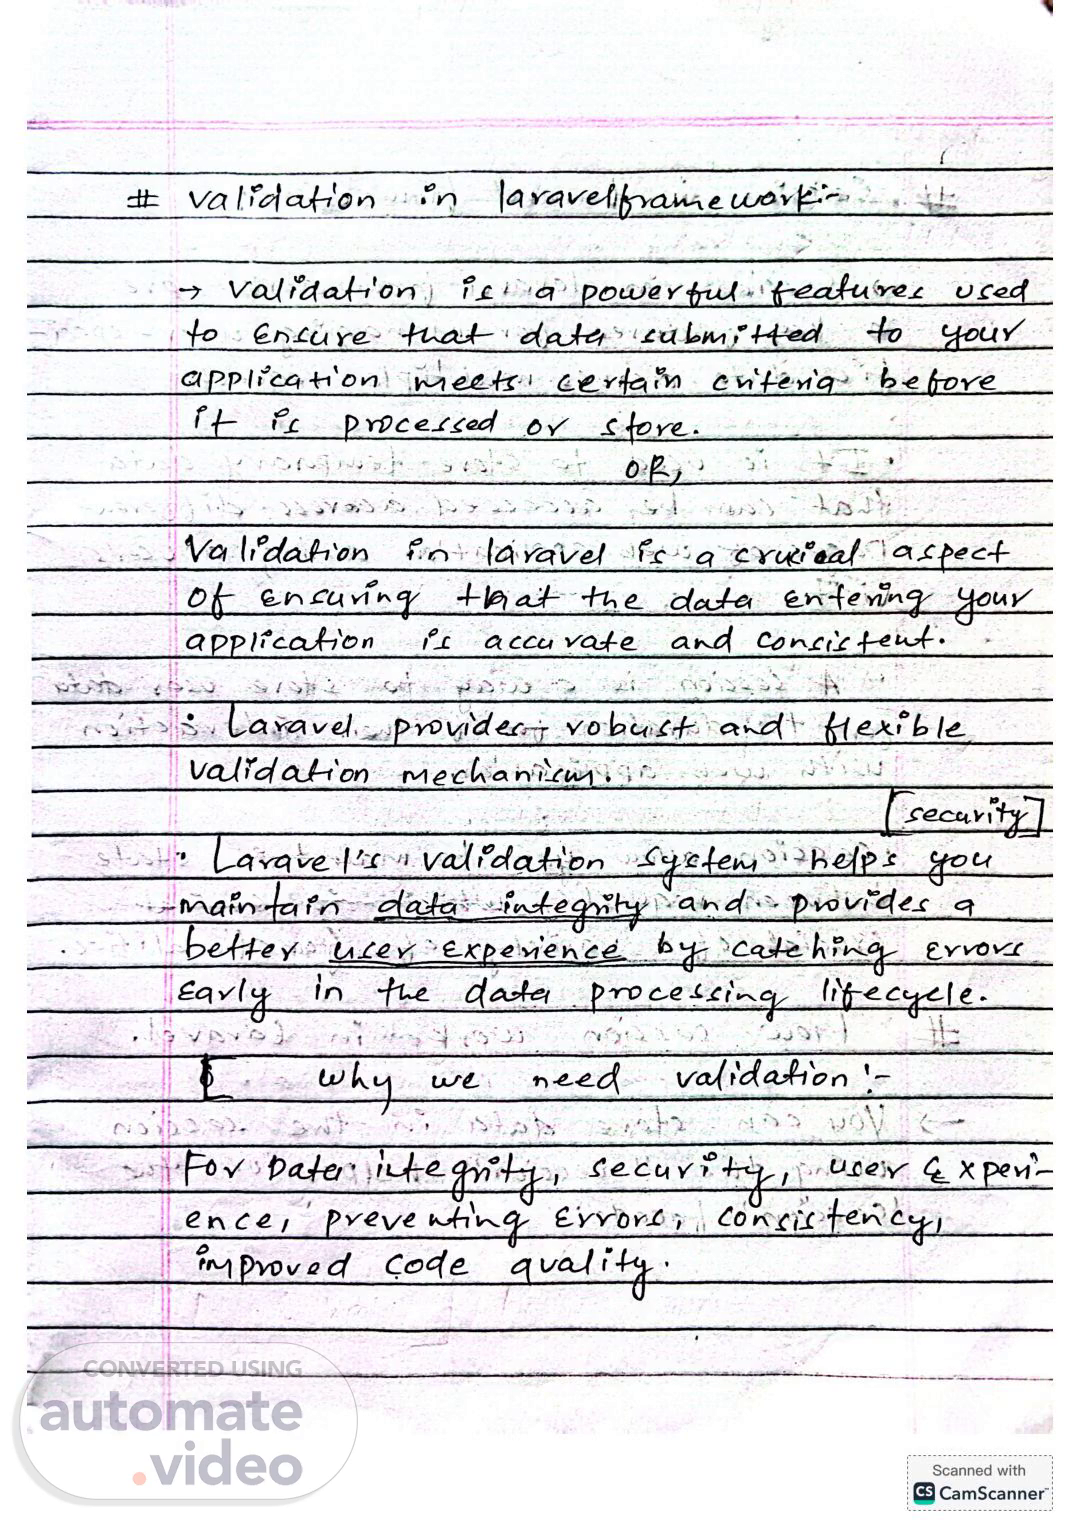 # validation in laravel framework:-
→ validation is a powerful features used
to ensure that data submitted to your
application meets certain criteria before
it is processed or store.
OR,
Validation in laravel is a crucial aspect
of ensuring that the data entering your
application is accurate and consistent.
: Laravel provides robust and flexible
validation mechanism.
[security]
· Laravel's validation system helps you
maintain data integrity and provides a
better user experience by catching errors
early in the data processing lifecycle.
why we need validation :-
For Data integrity, security, user experi-
ence, preventing errors, consistency,
improved code quality.
CONVERTED USING
automate
.video
Scanned with
CS CamScanner